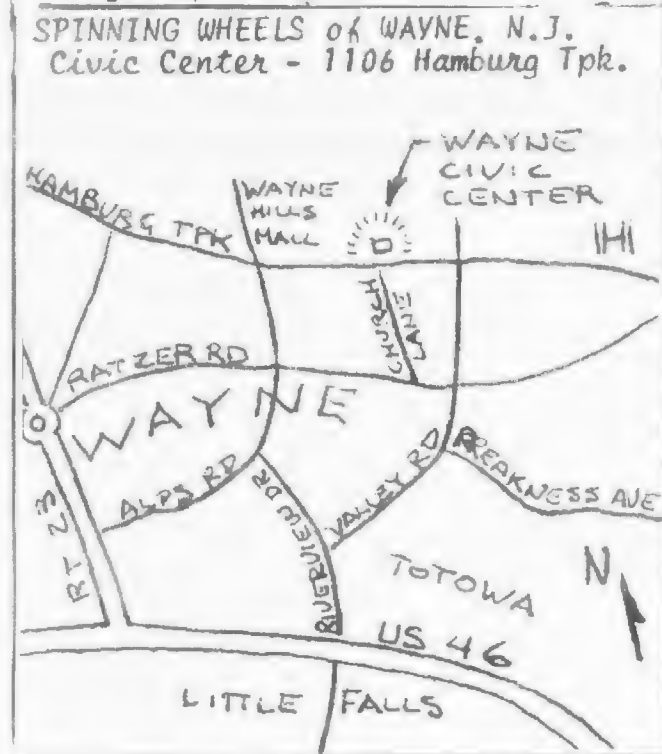 SPINNING WHEELS of WAYNE, N.J.
Civic Center - 1106 Hamburg Tpk.
WAYNE
CIVIC
CENTER
HAMBURG TPK
WAYNE
HILLS
MALL
CHURCH
LANE
RATZER RD
WAYNE
ALPS RD
RT 23
RIVERVIEW DR
VALLEY RD
PREAKNESS AVE
TOTOWA
N
US 46
LITTLE FALLS